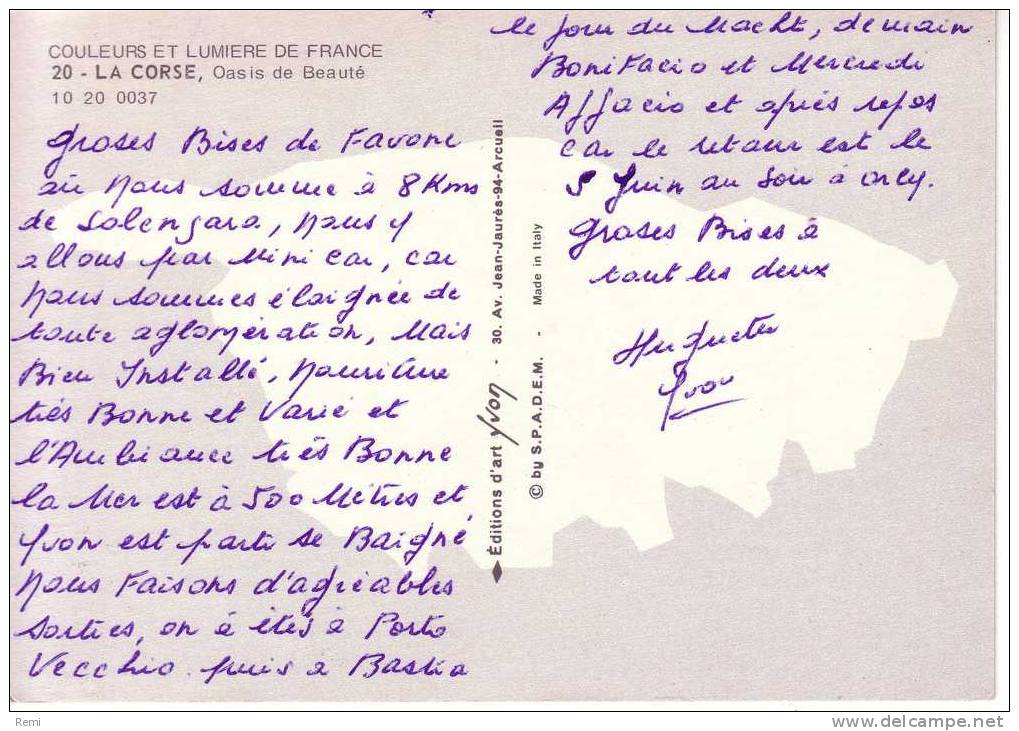 COULEURS ET LUMIERE DE FRANCE
20 - LA CORSE, Oasis de Beauté
10 20 0037
Groses Bises de Favone
où nous somme à 8 Kms
de Solenzara, nous y
allons par Mini Car, car
nous sommes éloignée de
toute aglomération, Mais
Bien Installé, nouriture
très Bonne et Varié et
l'Ambiance très Bonne
la Mer est à 500 Mètres et
Yvon est parti se Baigné
nous Faisons d'agréables
sorties, on à étés à Porto
Vecchio puis a Bastia
le jour du Macht, demain
Bonifacio et Mercredi
Ajjacio et après repos
car le retour est le
5 Juin au Soir à Orly.
Groses Bises à
tout les deux
Huguette
Yvon
Éditions d'art Yvon - 30. Av. Jean-Jaurès-94-Arcueil
© by S.P.A.D.E.M. - Made in Italy
Remi
www.delcampe.net